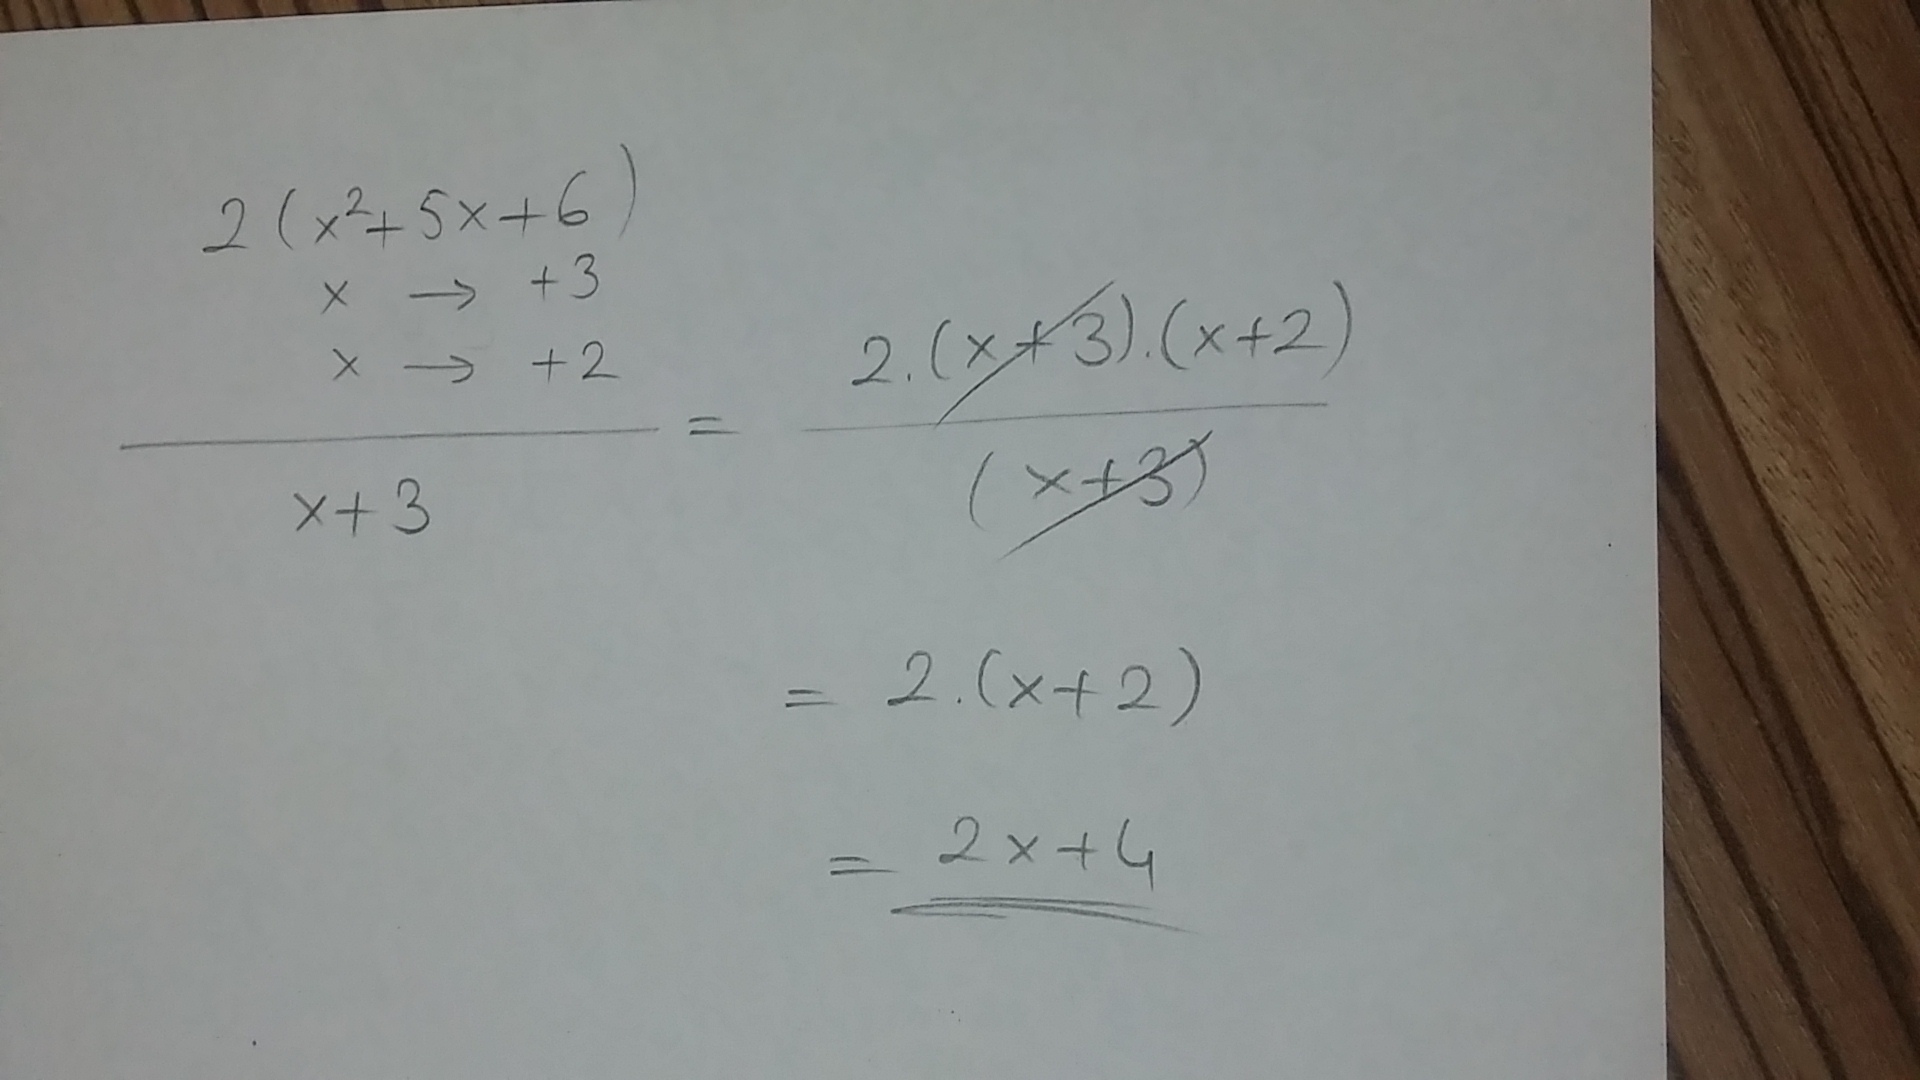 2(x²+5x+6)
x → +3
x → +2
x+3
= 2.(x+3).(x+2)
(x+3)
= 2.(x+2)
= 2x+4